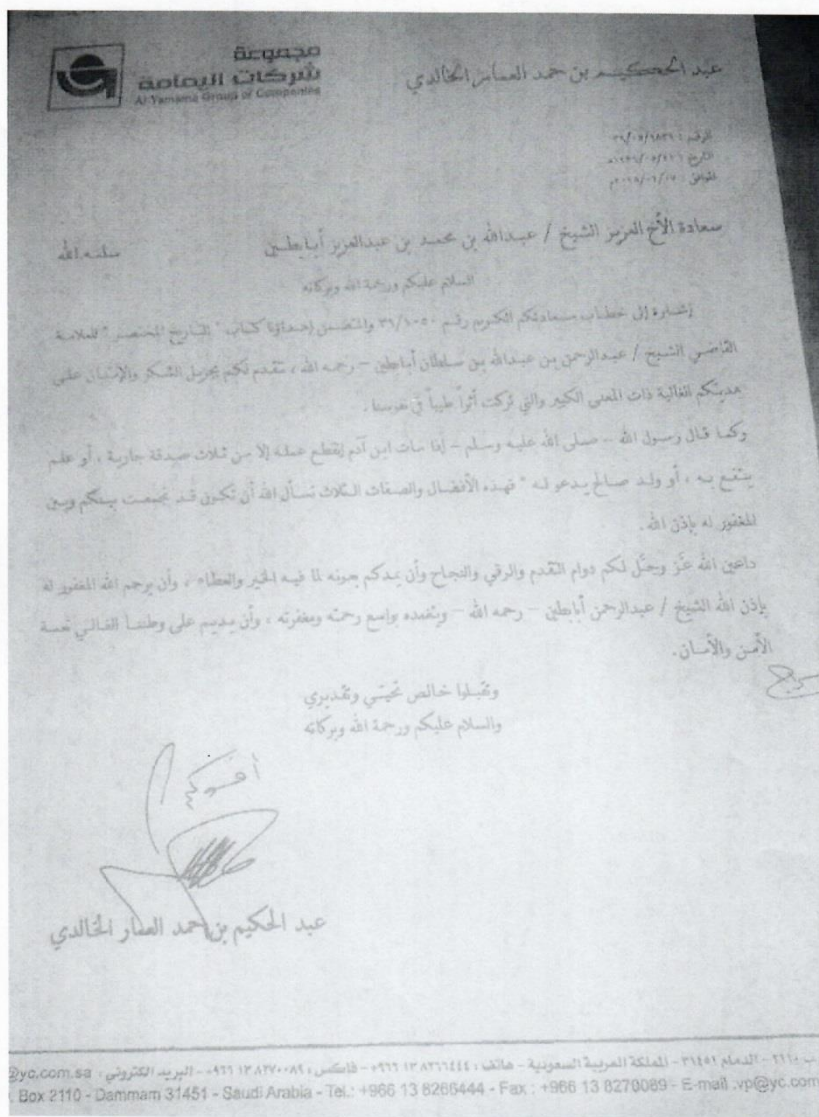 مجموعة
شركات اليمامة
Al-Yamama Group of Companies
عبد الحكيم بن حمد العمار الخالدي
الرقم :
التاريخ :
الموافق :
سعادة الأخ العزيز الشيخ / عبدالله بن محمد بن عبدالعزيز أبابطين سلمه الله
السلام عليكم ورحمة الله وبركاته
إشارة إلى خطاب سعادتكم الكريم رقم ٣٦/١٠٥٠ والمتضمن إهداؤنا كتاب " التاريخ المختصر " للعلامة
القاضي الشيخ / عبدالرحمن بن عبدالله بن سلطان أبابطين – رحمه الله ، نتقدم لكم بجزيل الشكر والإمتنان على
هديتكم الغالية ذات المعنى الكبير والتي تركت أثراً طيباً في نفوسنا .
وكما قال رسول الله – صلى الله عليه وسلم – إذا مات ابن آدم إنقطع عمله إلا من ثلاث صدقة جارية ، أو علم
ينتفع به ، أو ولد صالح يدعو له " فهذه الأفضال والصفات الثلاث نسأل الله أن تكون قد تجمعت بينكم وبين
المغفور له بإذن الله .
داعين الله عزَّ وجلَّ لكم دوام التقدم والرقي والنجاح وأن يمدكم بعونه لما فيه الخير والعطاء ، وأن يرحم الله المغفور له
بإذن الله الشيخ / عبدالرحمن أبابطين – رحمه الله – ويتغمده بواسع رحمته ومغفرته ، وأن يديم على وطننا الغالي نعمة
الأمن والأمان .
وتقبلوا خالص تحيتي وتقديري
والسلام عليكم ورحمة الله وبركاته
أخوكم
عبد الحكيم بن حمد العمار الخالدي
ب ٢١١٠ - الدمام ٣١٤٥١ - المملكة العربية السعودية - هاتف : ٨٢٦٦٤٤٤ ١٣ ٩٦٦+ - فاكس : ٨٢٧٠٠٨٩ ١٣ ٩٦٦+ - البريد الكتروني : @yc.com.sa
Box 2110 - Dammam 31451 - Saudi Arabia - Tel.: +966 13 8266444 - Fax : +966 13 8270089 - E-mail :vp@yc.com